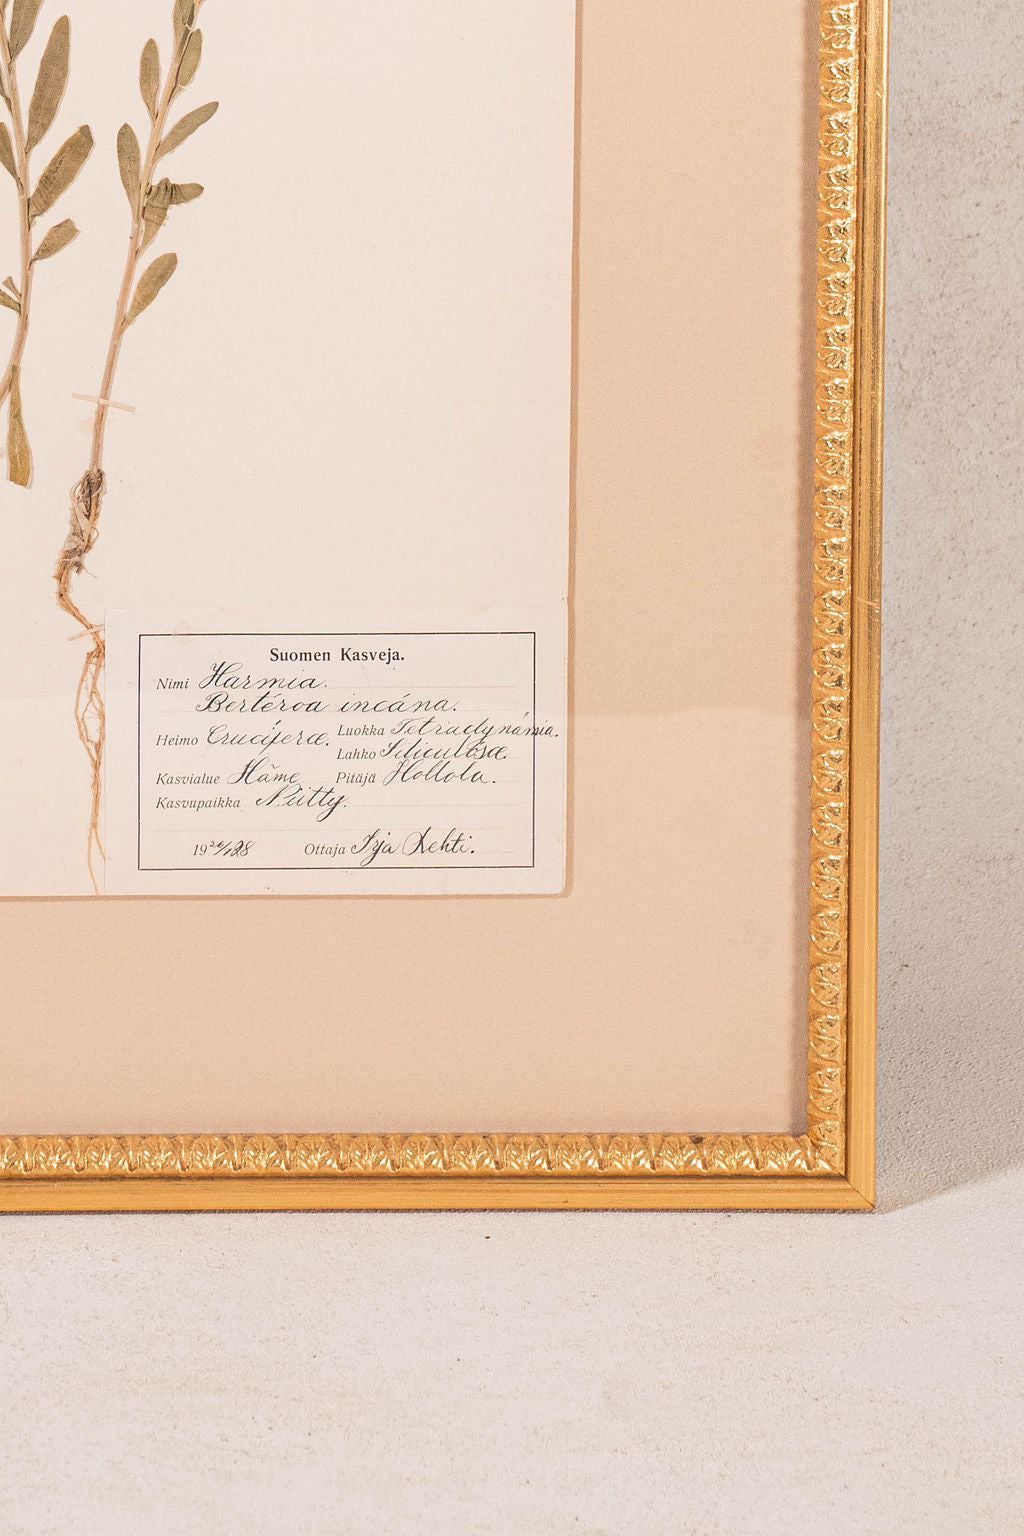 Suomen Kasveja.
Nimi Harmia.
Bertéroa incána.
Heimo Cruciferæ. Luokka Tetradynámia.
Lahko Siliculósæ.
Kasvialue Häme Pitäjä Hollola.
Kasvupaikka Niitty.
19 28 Ottaja Irja Lehti.